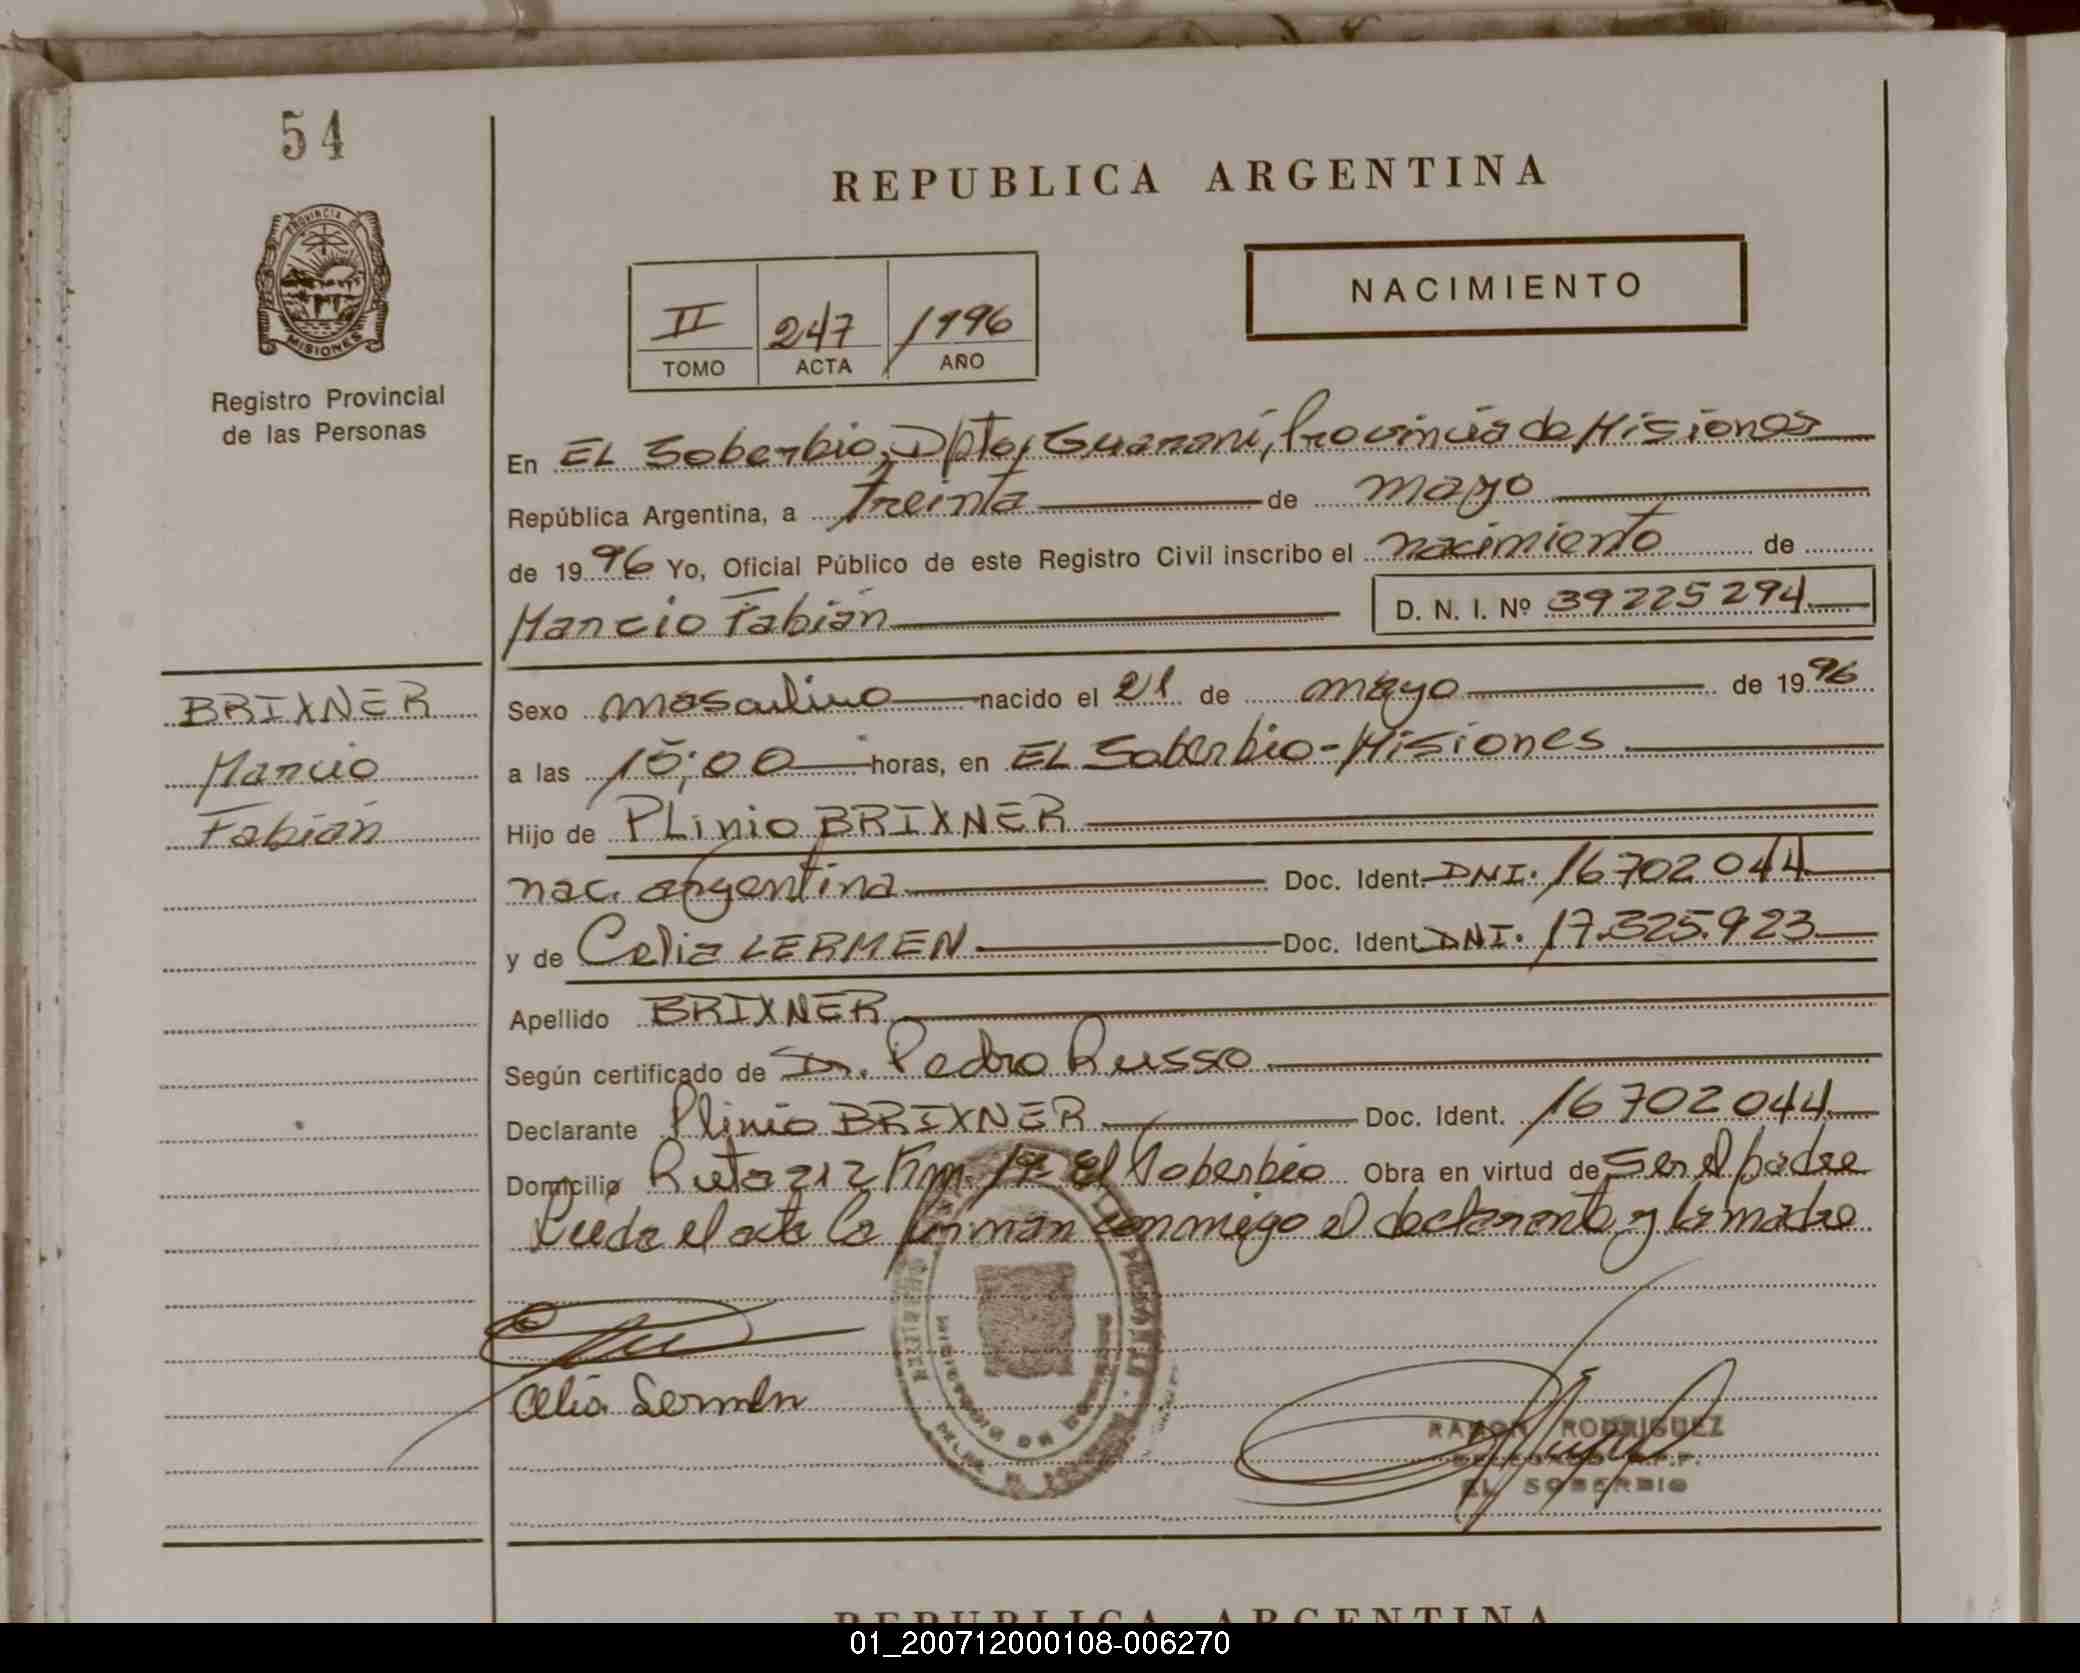 54
REPUBLICA ARGENTINA
PROVINCIA DE
MISIONES
Registro Provincial
de las Personas
NACIMIENTO
II 247 1996
TOMO ACTA AÑO
En EL Soberbio, Dpto, Guaraní, Provincia de Misiones
República Argentina, a treinta de mayo
de 1996 Yo, Oficial Público de este Registro Civil inscribo el nacimiento de
Marcio Fabián D. N. I. Nº 39225294
BRIXNER
Marcio
Fabián
Sexo masculino nacido el 21 de mayo de 1996
a las 15:00 horas, en EL Soberbio-Misiones
Hijo de PLinio BRIXNER
nac. argentina Doc. Ident. DNI. 16702044
y de Celia LERMEN Doc. Ident. DNI. 17.325.923
Apellido BRIXNER
Según certificado de Dr. Pedro Russo
Declarante Plinio BRIXNER Doc. Ident. 16702044
Domicilio Ruta 212 Km. 17- El Soberbio Obra en virtud de Ser el padre
Leida el acta la firman conmigo el declarante y la madre
Celia Lermen
RAMON RODRIGUEZ
EL SOBERBIO
REPUBLICA ARGENTINA
01_200712000108-006270